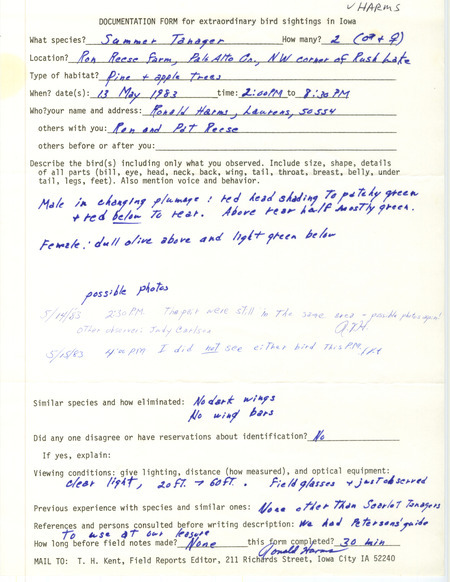 ✓HARMS
DOCUMENTATION FORM for extraordinary bird sightings in Iowa
What species? Summer Tanager How many? 2 (♂ + ♀)
Location? Ron Reese Farm, Palo Alto Co., NW corner of Rush Lake
Type of habitat? Pine + apple trees
When? date(s): 13 May 1983 time: 2:00PM to 8:30PM
Who?your name and address: Ronald Harms, Laurens, 50554
others with you: Ron and Pat Reese
others before or after you:
Describe the bird(s) including only what you observed. Include size, shape, details
of all parts (bill, eye, head, neck, back, wing, tail, throat, breast, belly, under
tail, legs, feet). Also mention voice and behavior.
Male in changing plumage: red head shading to patchy green
+ red below to rear. Above rear half mostly green.
Female: dull olive above and light green below
possible photos
5/14/83 2:30 PM The pair were still in the same area - possible photos again!
Other observer: Judy Carlsen
5/15/83 4:00 PM I did not see either bird this PM.
Similar species and how eliminated: No dark wings
No wing bars
Did any one disagree or have reservations about identification? No
If yes, explain:
Viewing conditions: give lighting, distance (how measured), and optical equipment:
clear light, 20 ft. → 60 ft. Field glasses + just observed
Previous experience with species and similar ones: None other than Scarlet Tanagers
References and persons consulted before writing description: We had Petersons' guide
to use at our leisure
How long before field notes made? None this form completed? 30 min
Ronald Harms
MAIL TO: T. H. Kent, Field Reports Editor, 211 Richards Street, Iowa City IA 52240